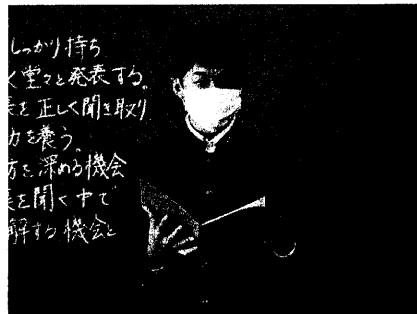 しっかり持ち
く堂々と発表する。
表を正しく聞き取り
力を養う。
方を深める機会
表を聞く中で
解する機会と